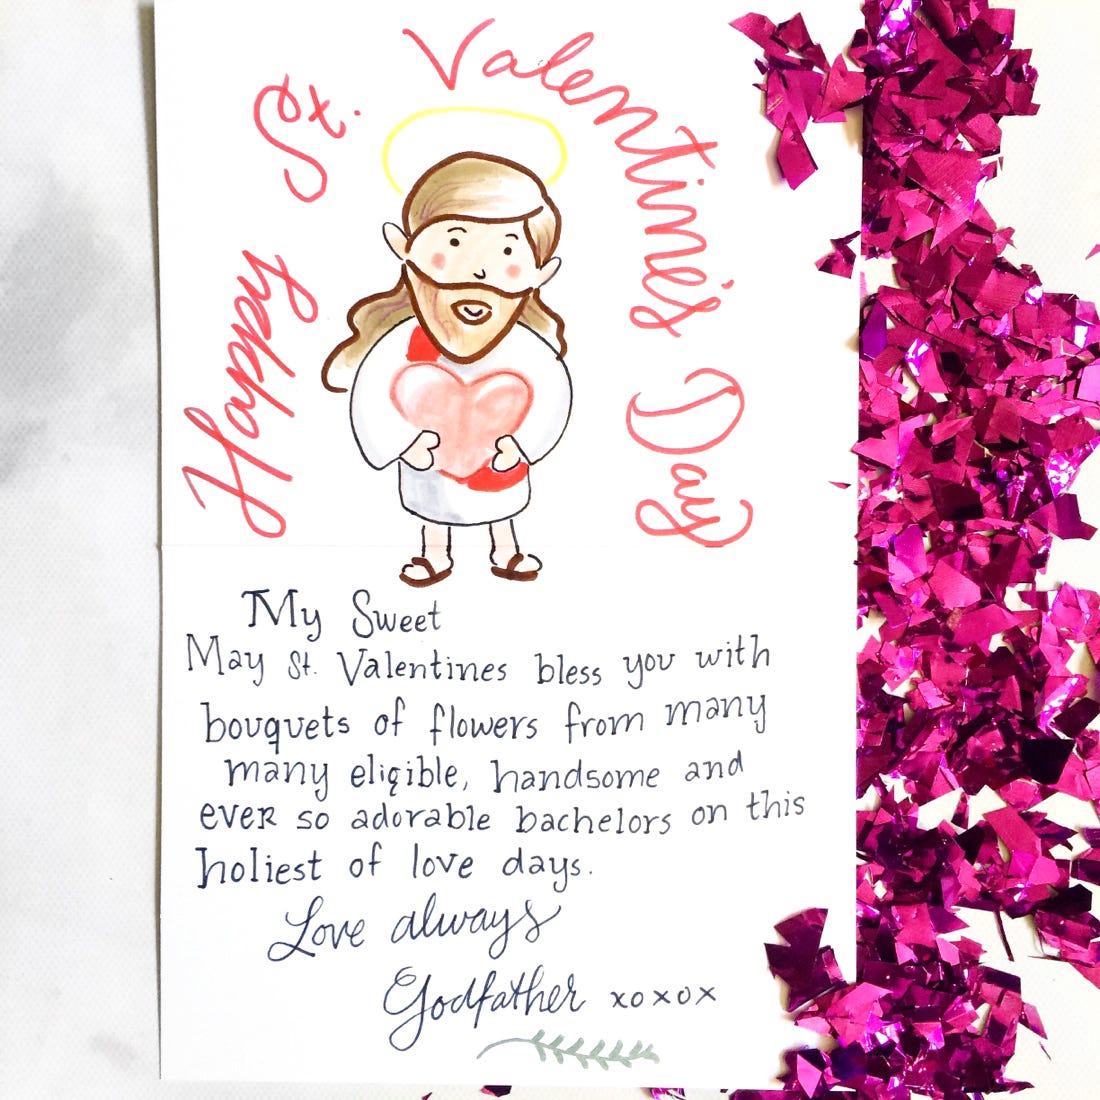 Happy St. Valentine's Day
My Sweet
May St. Valentines bless you with
bouquets of flowers from many
many eligible, handsome and
ever so adorable bachelors on this
holiest of love days.
Love always
Godfather xoxox